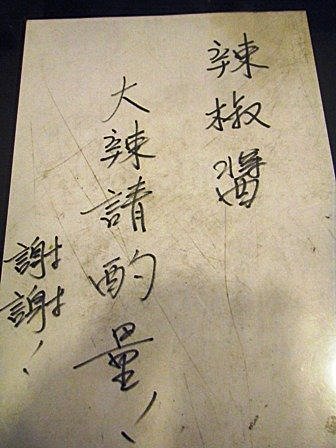 辣椒醬
大辣請酌量！
謝謝！